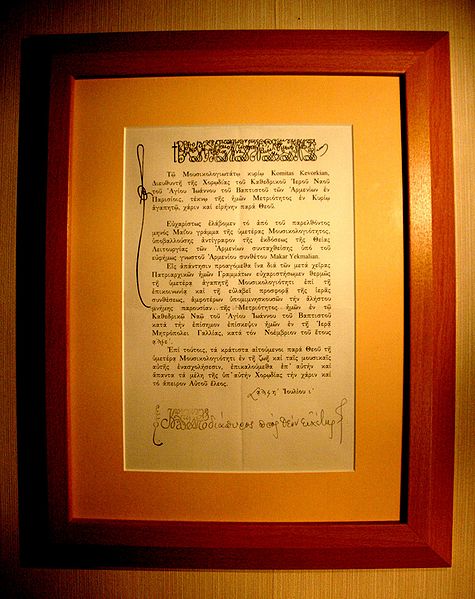 Τῷ Μουσικολογιωτάτῳ κυρίῳ Komitas Kevorkian,
Διευθυντῇ τῆς Χορῳδίας τοῦ Καθεδρικοῦ Ἱεροῦ Ναοῦ
τοῦ Ἁγίου Ἰωάννου τοῦ Βαπτιστοῦ τῶν Ἀρμενίων ἐν
Παρισίοις, τέκνῳ τῆς ἡμῶν Μετριότητος ἐν Κυρίῳ
ἀγαπητῷ, χάριν καί εἰρήνην παρά Θεοῦ.
Εὐχαρίστως ἐλάβομεν τό ἀπό τοῦ παρελθόντος
μηνός Μαΐου γράμμα τῆς ὑμετέρας Μουσικολογιότητος,
ὑποβαλλούσης ἀντίγραφον τῆς ἐκδόσεως τῆς Θείας
Λειτουργίας τῶν Ἀρμενίων συνταχθείσης ὑπό τοῦ
εὐφήμως γνωστοῦ Ἀρμενίου συνθέτου Makar Yekmalian.
Εἰς ἀπάντησιν προαγόμεθα ἵνα διά τῶν μετά χεῖρας
Πατριαρχικῶν ἡμῶν Γραμμάτων εὐχαριστήσωμεν θερμῶς
τῇ ὑμετέρᾳ ἀγαπητῇ Μουσικολογιότητι ἐπί τῇ
ἐπικοινωνίᾳ καί τῇ εὐλαβεῖ προσφορᾷ τῆς ἱερᾶς
συνθέσεως, ἀμφοτέρων ὑπομιμνησκουσῶν τήν ἄληστον
μνήμης παρουσίαν τῆς Μετριότητος ἡμῶν ἐν τῷ
Καθεδρικῷ Ναῷ τοῦ Ἁγίου Ἰωάννου τοῦ Βαπτιστοῦ
κατά τήν ἐπίσημον ἐπίσκεψιν ἡμῶν ἐν τῇ Ἱερᾷ
Μητροπόλει Γαλλίας, κατά τόν Νοέμβριον τοῦ ἔτους
Ἐπί τούτοις, τά κράτιστα αἰτούμενοι παρά Θεοῦ τῇ
ὑμετέρᾳ Μουσικολογιότητι ἐν τῇ ζωῇ καί ταῖς μουσικαῖς
αὐτῆς ἐνασχολήσεσιν, ἐπικαλούμεθα ἐπ᾽ αὐτήν καί
ἅπαντα τά μέλη τῆς ὑπ᾽ αὐτήν Χορῳδίας τήν χάριν καί
τό ἄπειρον Αὐτοῦ ἔλεος.
Ἰουλίου ι´
διάπυρος πρός Θεόν εὐχέτης